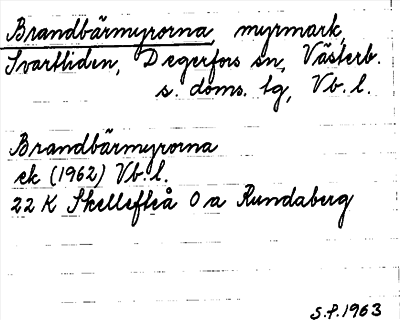 Brandbärmyrorna, myrmark,
Svartliden, Degerfors sn, Västerb.
s. doms. lg, Vb. l.
Brandbärmyrorna
ek (1962) Vb. l.
22 K Skellefteå 0 a Rundaberg
S.P. 1963